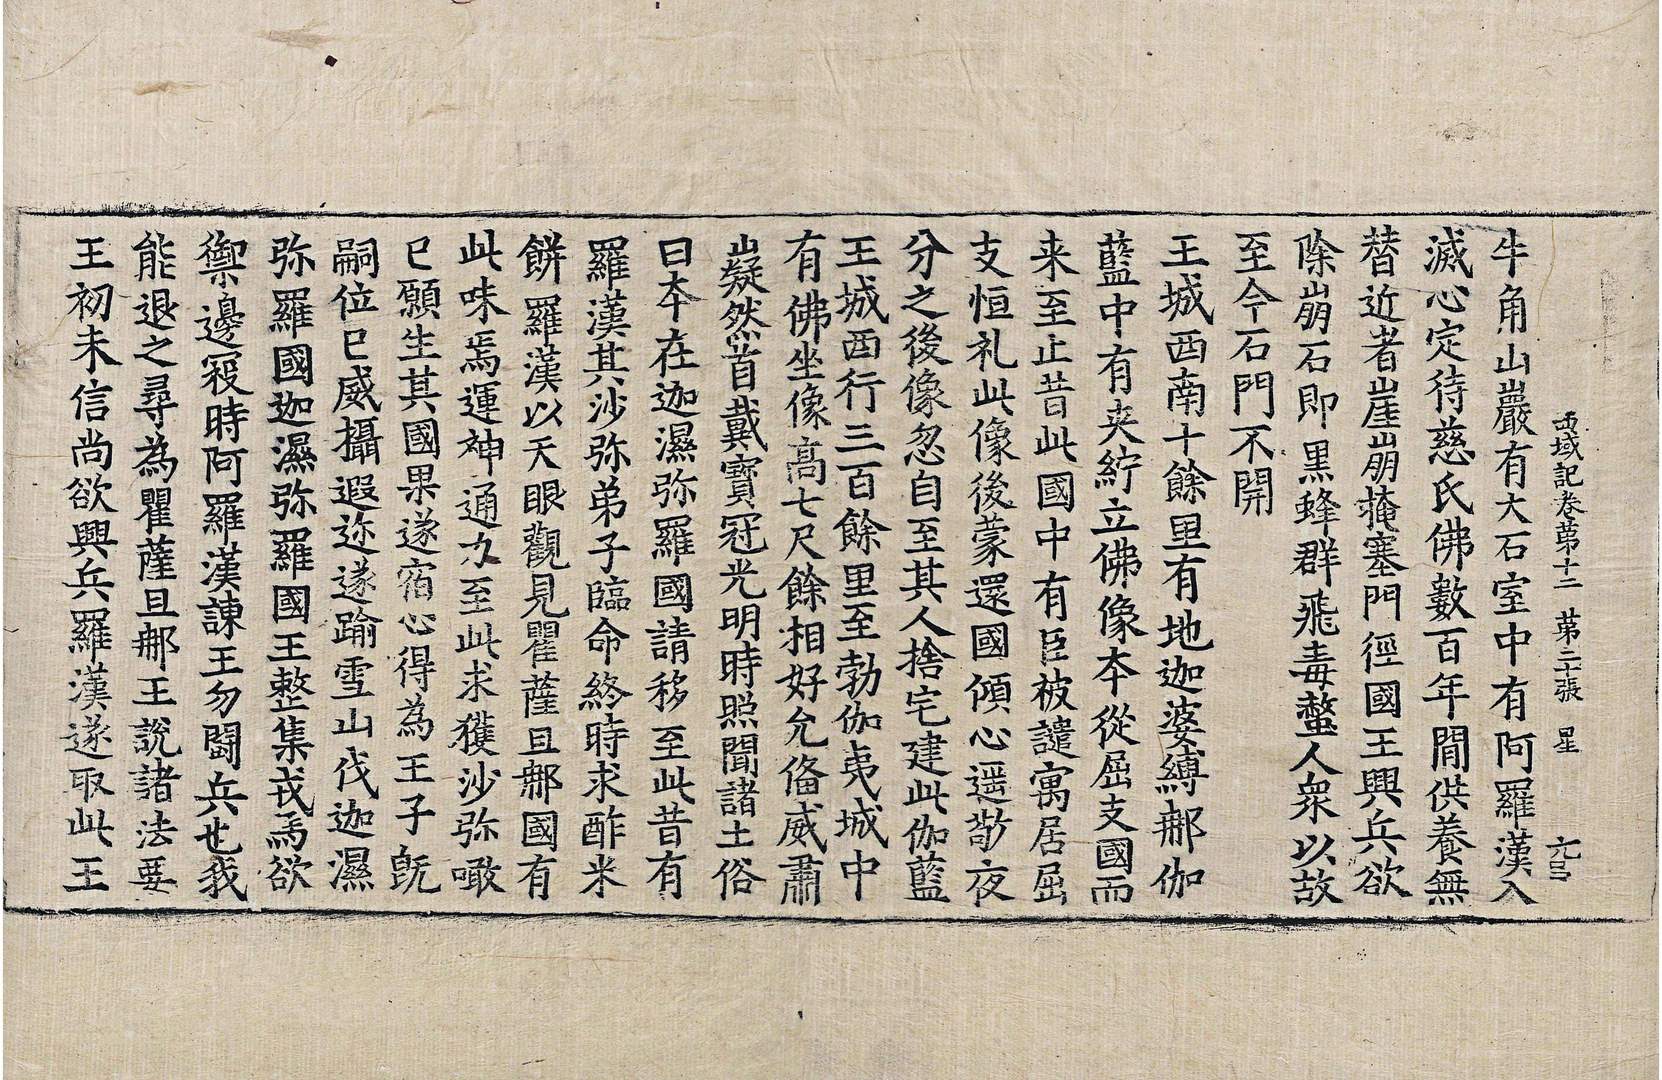 西域記卷第十二　第二十張　星
牛角山巖有大石室中有阿羅漢入
滅心定待慈氏佛數百年閒供養無
替近者崖崩掩塞門徑國王興兵欲
除崩石即黑蜂群飛毒螫人衆以故
至今石門不開
王城西南十餘里有地迦婆縛那伽
藍中有夾紵立佛像本從屈支國而
来至止昔此國中有臣被譴寓居屈
支恒礼此像後蒙還國傾心遥敬夜
分之後像忽自至其人捨宅建此伽藍
王城西行三百餘里至勃伽夷城中
有佛坐像高七尺餘相好允俻威肅
嶷然首戴寶冠光明時照聞諸土俗
曰本在迦濕弥羅國請移至此昔有
羅漢其沙弥弟子臨命終時求酢米
餅羅漢以天眼觀見瞿薩旦那國有
此味焉運神通力至此求獲沙弥噉
已願生其國果遂宿心得為王子旣
嗣位已威攝遐迩遂踰雪山伐迦濕
弥羅國迦濕弥羅國王整集戎馬欲
禦邊寇時阿羅漢諫王勿鬪兵也我
能退之尋為瞿薩旦那王說諸法要
王初未信尚欲興兵羅漢遂取此王